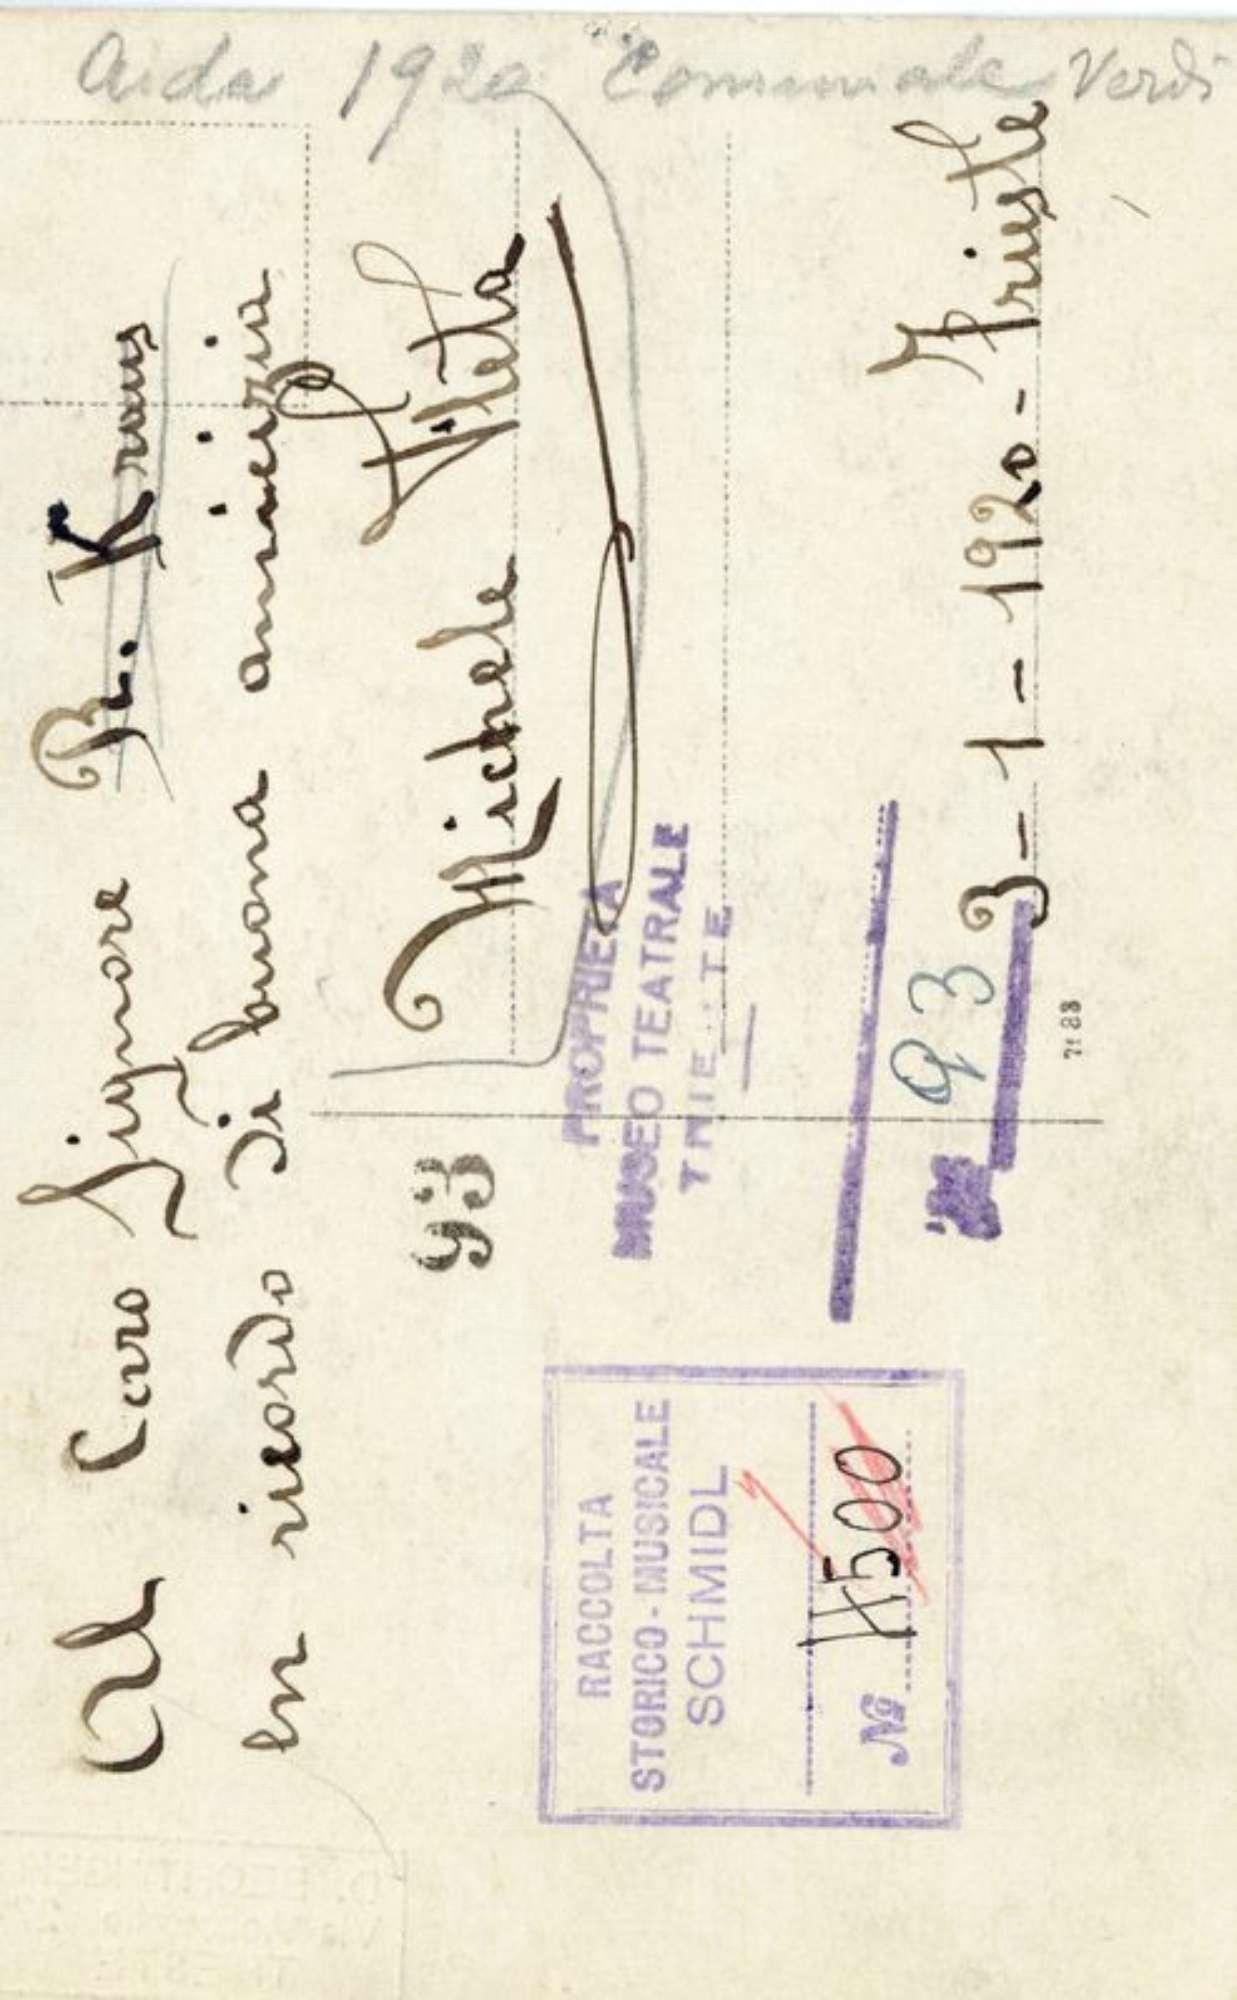 Aida 1920 Comunale Verdi
Al Caro Signore R. Kraus
in ricordo di buona amicizia
Michele
3-1-1920- Trieste
93
93
7183
PROPRIETÀ
MUSEO TEATRALE
RACCOLTA
STORICO-MUSICALE
SCHMIDL
№ 11500